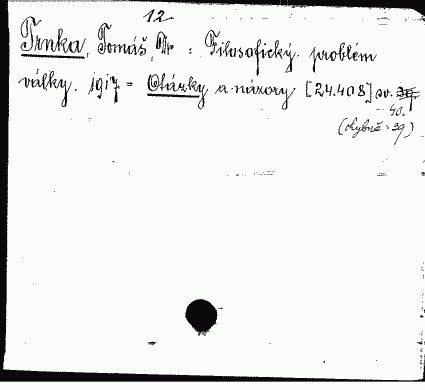 12
Trnka, Tomáš, Dr: Filosofický problém
války. 1917 = Otázky a názory [24.408] sv. 39.
40.
(chybně: 39)